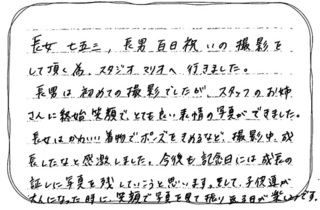 長女 七五三、長男 百日祝いの撮影を
して頂く為、スタジオマリオへ 行きました。
長男は 初めての撮影でしたが、スタッフのお姉
さんに終始 笑顔で、とても良い表情の写真ができました。
長女はかわいい着物でポーズをきめるなど、撮影中、成
長したなと感激しました。今後も 記念日には、成長の
証しに写真を残していこうと思います。そして、子供達が
大人になった時に、笑顔で写真を見て振り返る日が楽しみです。